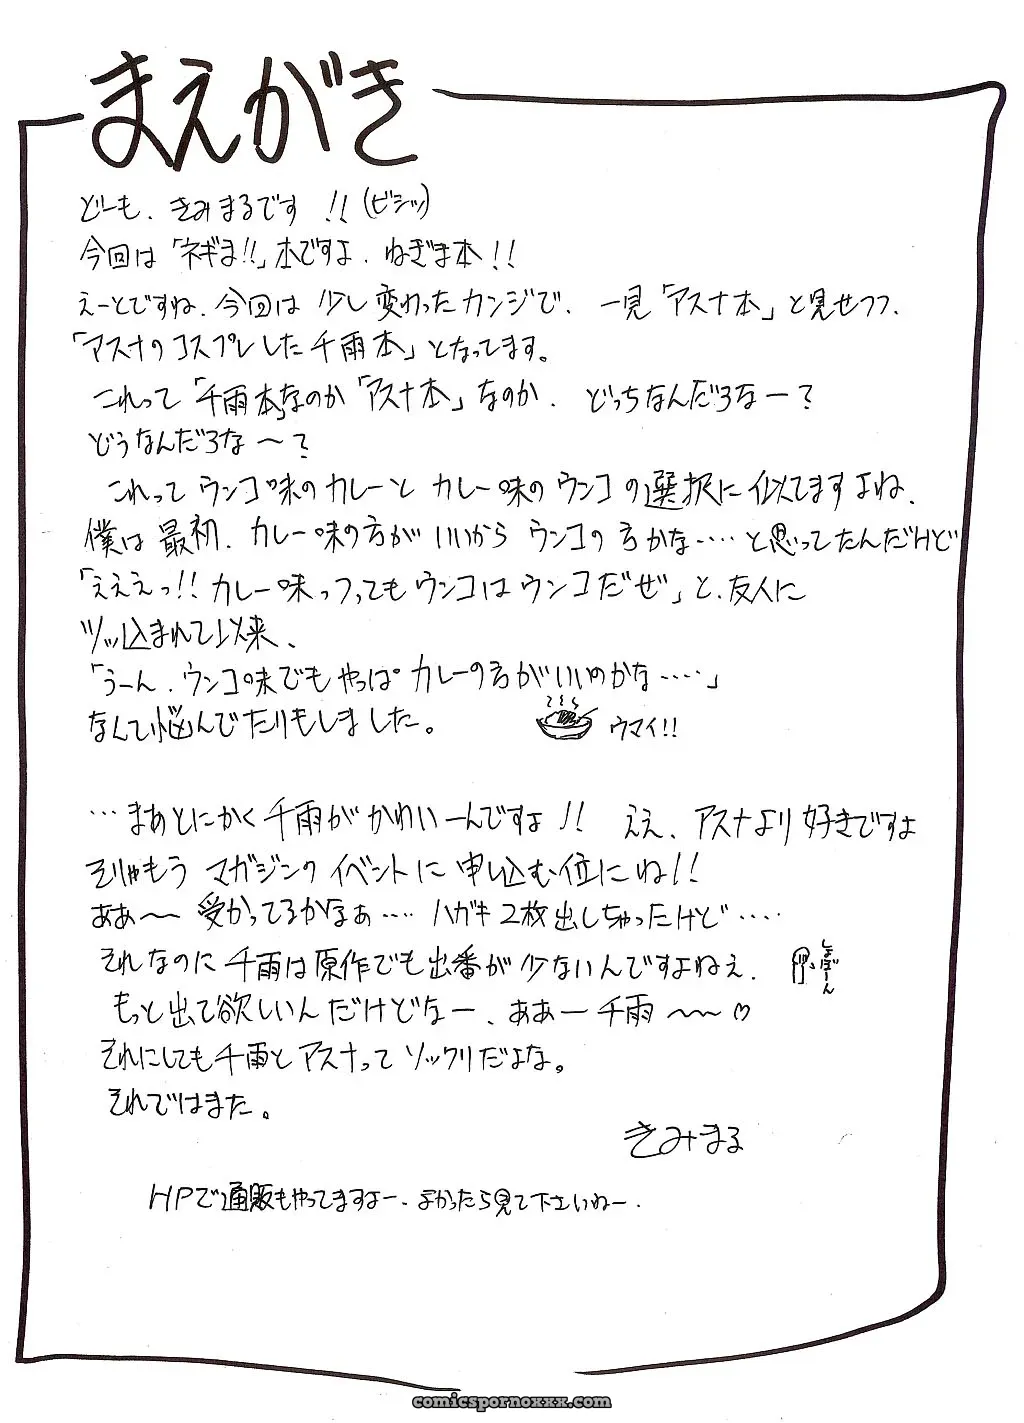 まえがき
どーも、きみまるです!!(ビシッ)
今回は「ネギま!!」本ですよ、ねぎま本!!
えーとですね、今回は少し変わったカンジで、一見「アスナ本」と見せつつ、
「アスナのコスプレした千雨本」となってます。
これって「千雨本」なのか「アスナ本」なのか、どっちなんだろなー?
どうなんだろな〜?
これってウンコ味のカレーとカレー味のウンコの選択に似てますよね、
僕は最初、カレー味の方がいいからウンコの方かな‥‥と思ってたんだけど
「えええっ!!カレー味っつってもウンコはウンコだぜ」と、友人に
ツッ込まれて以来、
「うーん、ウンコ味でもやっぱカレーの方がいいのかな‥‥」
なんて悩んでたりもしました。
ウマイ!!
…まあとにかく千雨がかわいーんですよ!!ええ、アスナより好きですよ
そりゃもうマガジンのイベントに申し込む位にね!!
ああ〜受かってるかなぁ‥‥ハガキ2枚出しちゃったけど‥‥
それなのに千雨は原作でも出番が少ないんですよねぇ、
しょぼーん
もっと出て欲しいんだけどなー、ああー千雨〜〜♡
それにしても千雨とアスナってソックリだよな。
それではまた。
きみまる
HPで通販もやってますよー、よかったら見て下さいねー、
comicspornoxxx.com